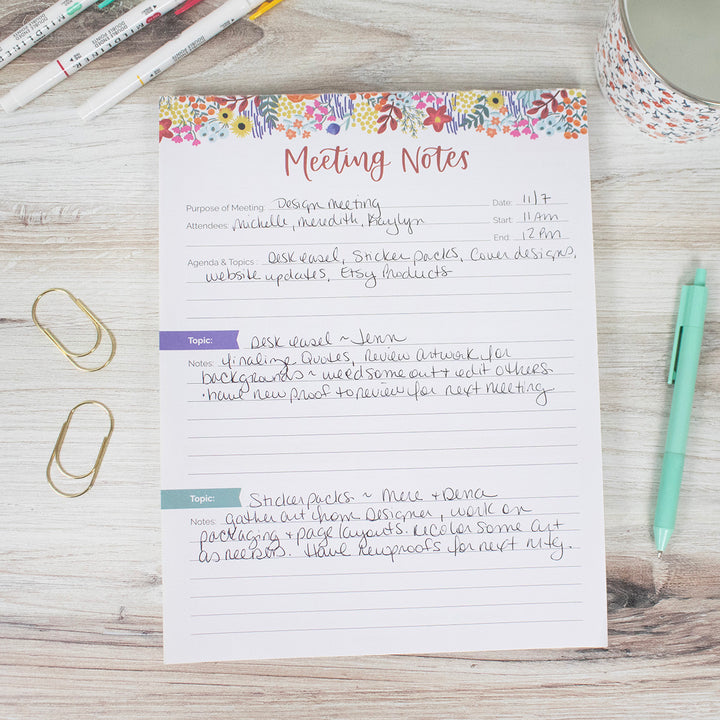 MILDLINER
DOUBLE
MILDLINER
DOUBLE
Meeting Notes
Purpose of Meeting: Design meeting
Date: 11/7
Attendees: Michelle, Meredith, Kaylyn
Start: 11 Am
End: 12 Pm
Agenda & Topics: Desk easel, Sticker packs, Cover designs,
website updates, Etsy Products
Topic: Desk easel ~ Jenn
Notes: finaling Quotes, Review artwork for
backgrounds ~ weed some out + edit others.
· have new proof to review for next meeting
Topic: Sticker packs ~ Mere + Dena
Notes: gather art from Designer, work on
packaging + page layouts. recolor some art
as needed. Have new proofs for next mtg.